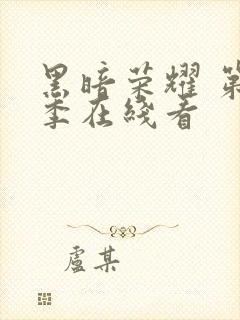 黑暗荣耀 第
季在线看
卢某